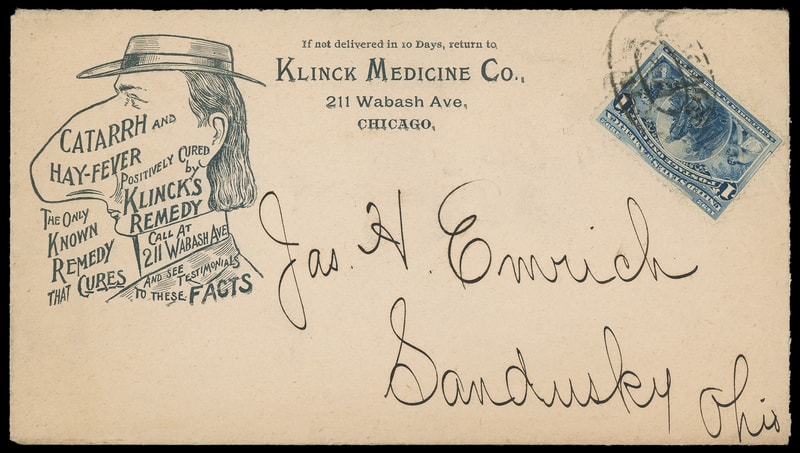 If not delivered in 10 Days, return to
KLINCK MEDICINE CO.,
211 Wabash Ave,
CHICAGO.
CATARRH AND
HAY-FEVER
POSITIVELY CURED
by
KLINCK'S
REMEDY
THE ONLY
KNOWN
REMEDY
THAT CURES
CALL AT
211 WABASH AVE
AND SEE
TESTIMONIALS
TO THESE FACTS
Jas. H. Emrich
Sandusky
Ohio
1